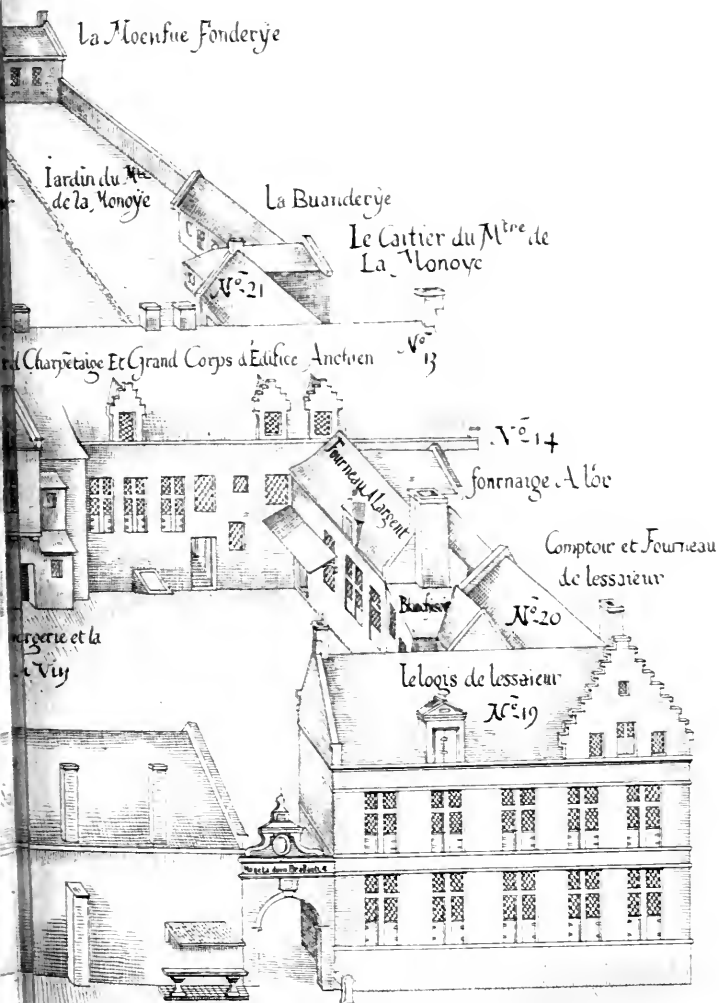 La Moenfue Fonderÿe
Iardin du Mtre
de la Monoÿe
La Buanderÿe
Le Cartier du Mtre de
La Monoye
No 21
No 13
Charpētaige Et Grand Corps d'Edifice Anchien
No 14
Fourneau A Largent
fonrnaige A l'or
Comptoir et Fourneau
de lessaieur
No 20
et la
lelogis de lessaieur
No 19